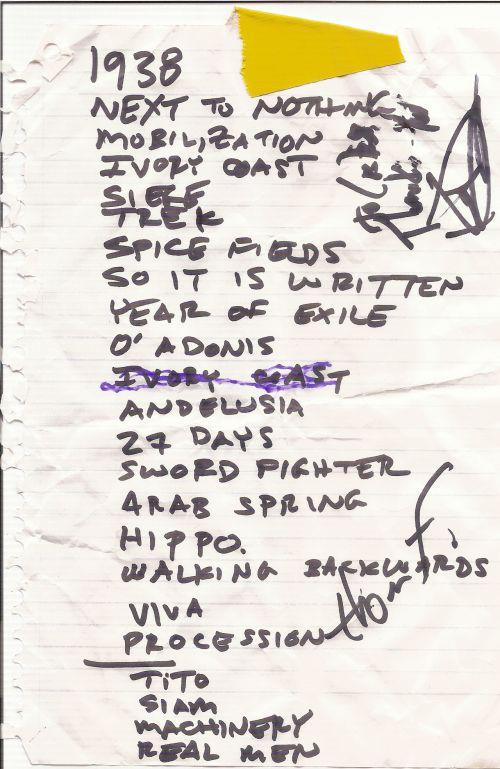 1938
NEXT TO NOTHING
MOBILIZATION
IVORY COAST
SIEGE
TREK
SPICE FIELDS
SO IT IS WRITTEN
YEAR OF EXILE
O' ADONIS
IVORY COAST
ANDELUSIA
27 DAYS
SWORD FIGHTER
ARAB SPRING
HIPPO.
WALKING BACKWARDS
VIVA
PROCESSION
TITO
SIAM
MACHINERY
REAL MEN